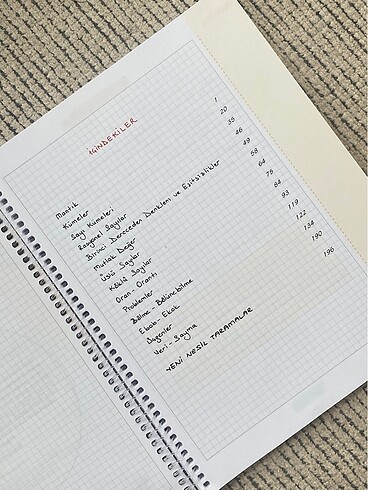 İÇİNDEKİLER
Mantık 1
Kümeler 20
Sayı Kümeleri 35
Rasyonel Sayılar 46
Birinci Dereceden Denklem ve Eşitsizlikler 49
Mutlak Değer 58
Üslü Sayılar 64
Köklü Sayılar 76
Oran-Orantı 84
Problemler 93
Bölme-Bölünebilme 119
Ebob-Ekok 122
Üçgenler 134
Veri-Sayma 190
YENİ NESİL TARAMALAR 196